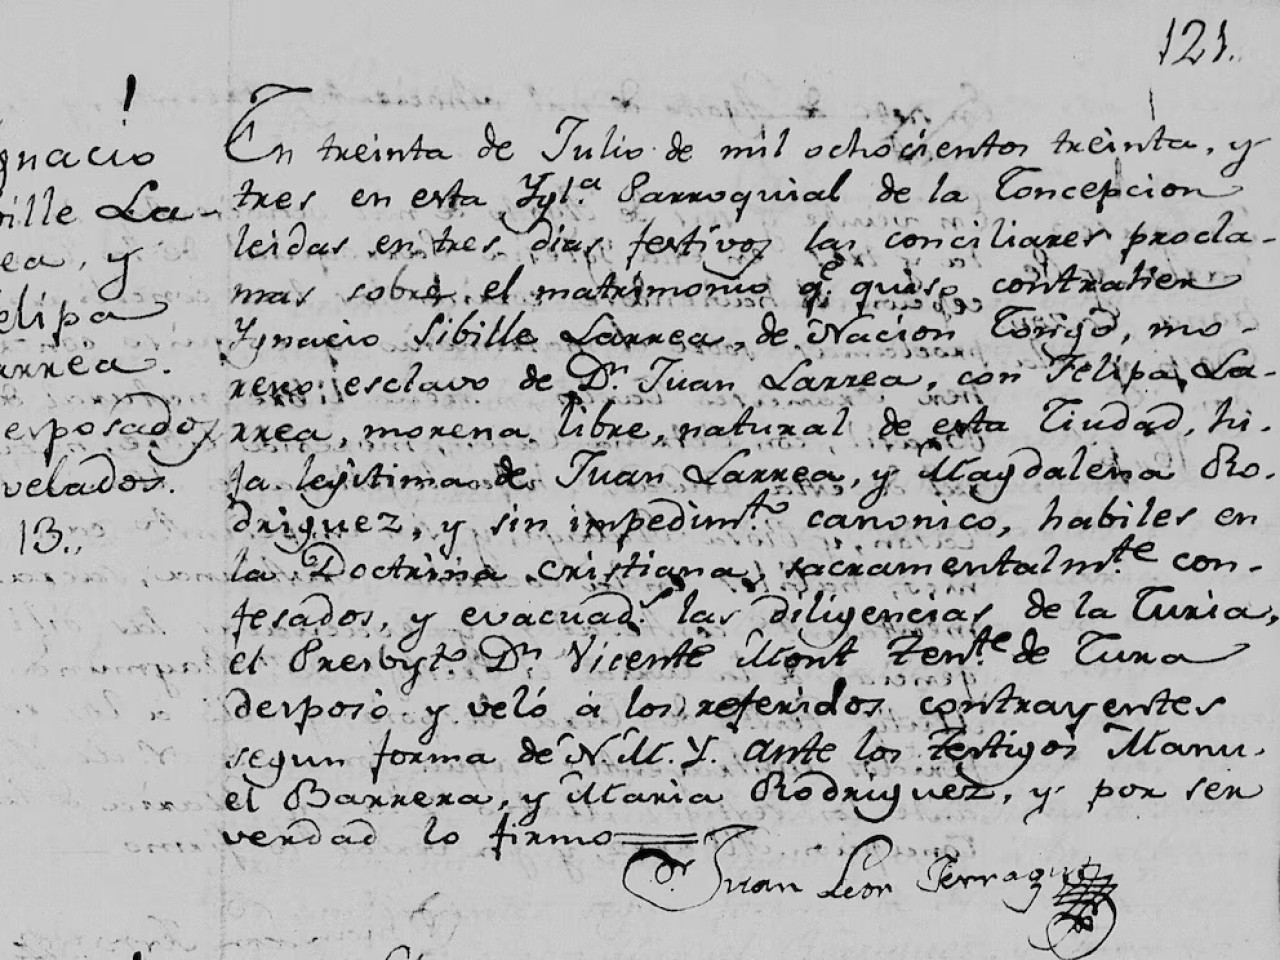 121.
gnacio
ville La-
ea, y
elipa
arrea.
esposados
velados.
13.,
En treinta de Julio de mil ochocientos treinta, y
tres en esta Ygl.ª Parroquial de la Concepcion
leidas en tres dias festivos las conciliares procla-
mas sobre el matrimonio q.e quiso contraher
Ygnacio Sibille Larrea, de Nacion Congo, mo-
reno esclavo de D.n Juan Larrea, con Felipa La-
rrea, morena libre, natural de esta Ciudad, hi-
ja legitima de Juan Larrea, y Magdalena Ro-
driguez, y sin impedim.to canonico, habiles en
la Doctrina cristiana, sacramentalm.te con-
fesados, y evacuad.s las diligencias de la Curia,
el Presbyt.o D.n Vicente Mont Ten.te de Cura
desposó y veló á los referidos contrayentes
segun forma de N. M. Y. ante los testigos Manu-
el Barrera, y Maria Rodriguez, y por ser
verdad lo firmo
D.r Juan Leon Ferragut